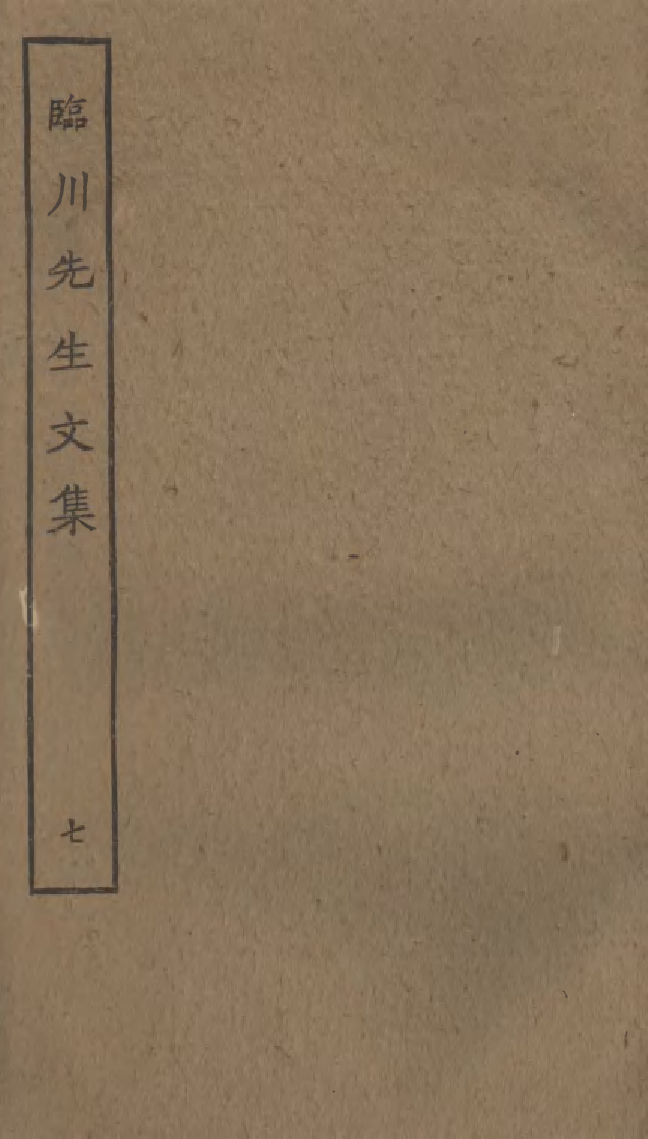 臨川先生文集
七